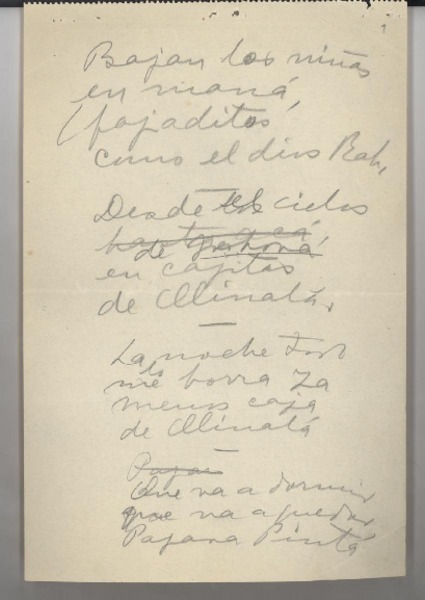 1
Bajan los niñas
en maná,
fajaditos
como el dios Rab,
Desde cielos
hasta acá
de Jehová
en cajitas
de Olinalá,
La noche todo
me lo borra ya
menos caja
de Olinalá
Que va a dormir
que va a quedar
Pajara Pintá